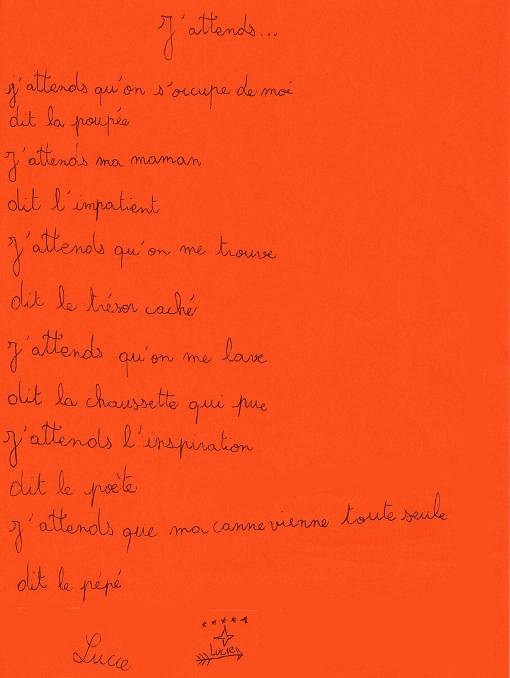 J'attends...
j'attends qu'on s'occupe de moi
dit la poupée
J'attends ma maman
dit l'impatient
J'attends qu'on me trouve
dit le trésor caché
J'attends qu'on me lave
dit la chaussette qui pue
J'attends l'inspiration
dit le poète
J'attends que ma canne vienne toute seule
dit le pépé
Lucie
Lucie